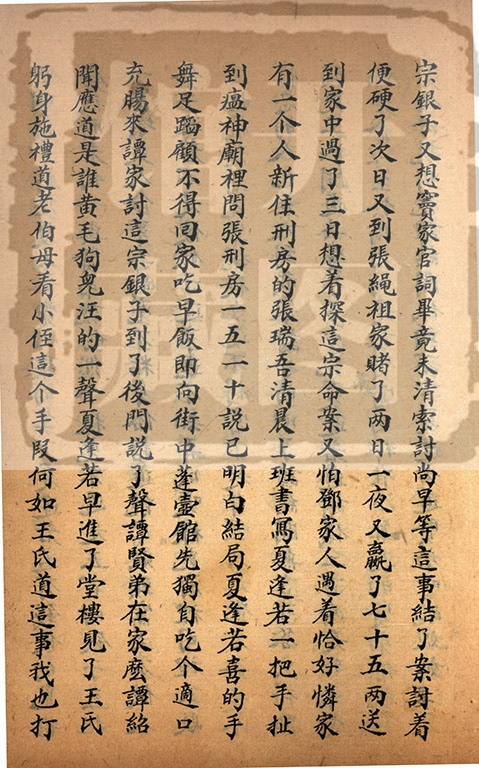 宗銀子又想竇家官詞畢竟未清索討尚早等這事結了案討着
便硬了次日又到張繩祖家賭了两日一夜又贏了七十五两送
到家中過了三日想着探這宗命案又怕鄧家人遇着恰好憐家
有一个人新住刑房的張瑞吾清晨上班書寫夏逢若一把手扯
到瘟神廟裡問張刑房一五一十説已明白結局夏逢若喜的手
舞足蹈顧不得回家吃早飯即向街中蓬壺館先獨自吃个適口
充腸來譚家討這宗銀子到了後門説了聲譚賢弟在家麽譚紹
聞應道是誰黄毛狗兒汪的一聲夏逢若早進了堂樓見了王氏
躬身施禮道老伯母看小侄這个手叚何如王氏道這事我也打